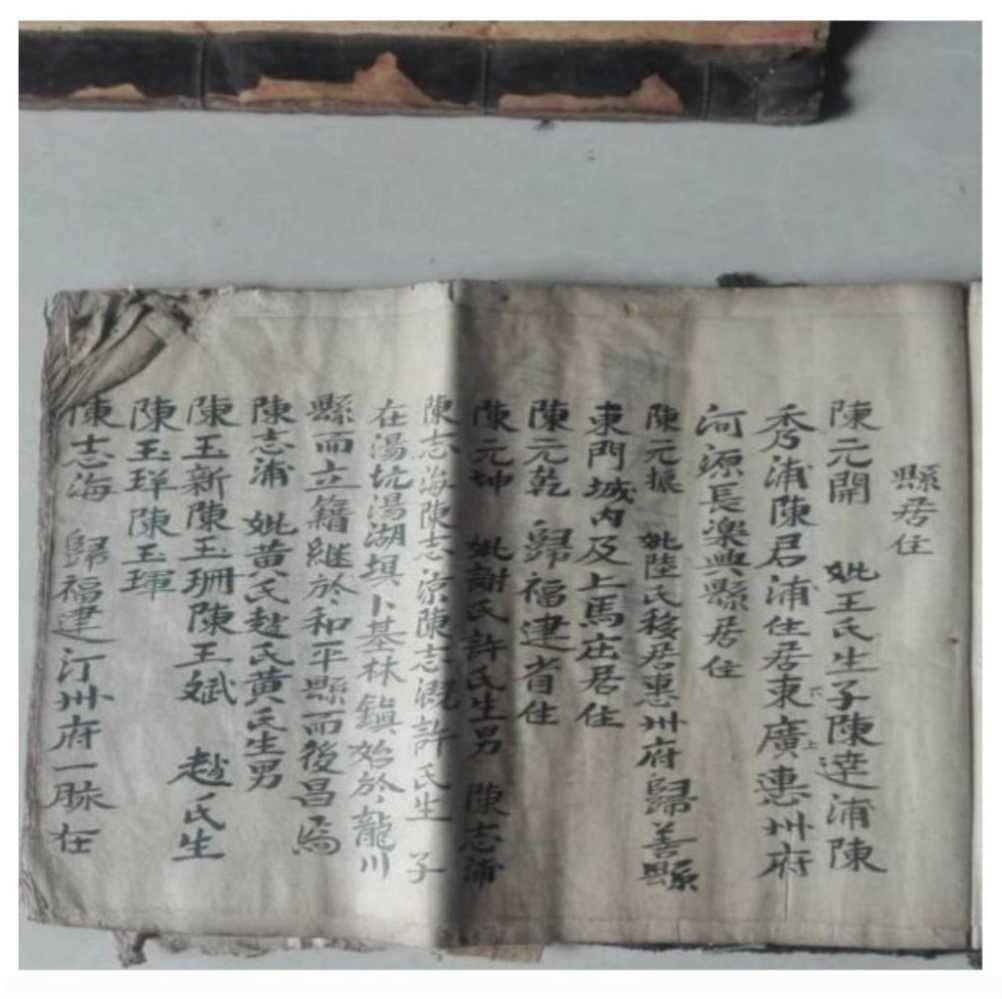 縣居住
陳元開 妣王氏生子陳達浦陳
秀浦陳君浦住居東下廣上惠州府
河源長樂興縣居住
陳元振 妣陸氏移居惠州府歸善縣
東門城內及上馬庄居住
陳元乾 歸福建省住
陳元坤 妣謝氏許氏生男 陳志浦
陳志海陳志涼陳志溉許氏生 子
在湯坑湯湖埧卜基林鎮始於龍川
縣而立籍継於和平縣而後昌焉
陳志浦 妣黄氏赵氏黄氏生男
陳玉新陳玉珊陳玉斌 赵氏生
陳玉珜陳玉琿
陳志海 歸福建汀州府一脉在